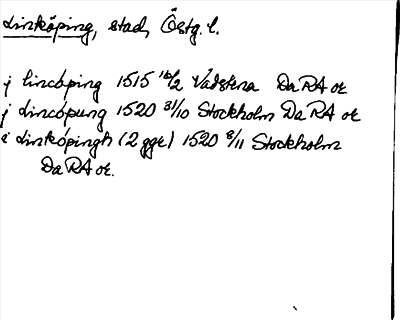 Linköping, stad, Östg. l.
j lincöping 1515 16/2 Vadstena DaRA or
j Lincöpung 1520 31/10 Stockholm DaRA or
i Linköpingh (2 ggr) 1520 8/11 Stockholm
DaRA or.